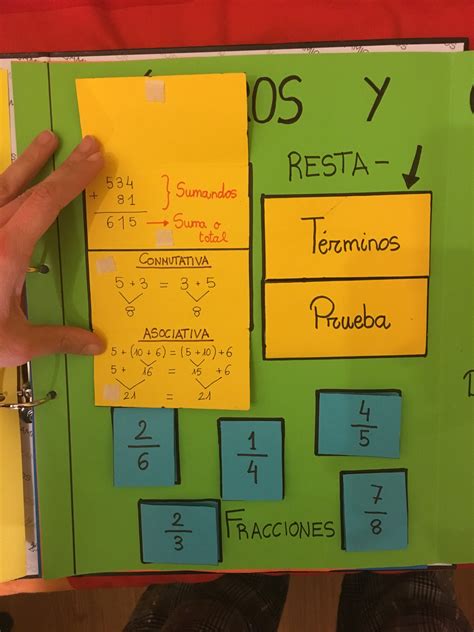 ROS Y
RESTA -
534
+ 81
615
Sumandos
Suma o
total
Términos
Prueba
CONMUTATIVA
5 + 3 = 3 + 5
8 8
ASOCIATIVA
5 + (10 + 6) = (5 + 10) + 6
5 + 16 = 15 + 6
21 = 21
2/6
1/4
4/5
2/3
FRACCIONES
7/8